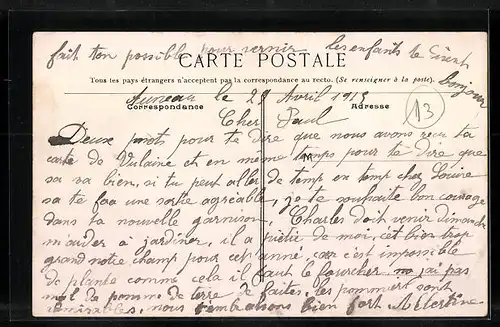 fait ton possible pour venir les enfants te disent
bonjour
CARTE POSTALE
Tous les pays étrangers n'acceptent pas la correspondance au recto. (Se renseigner à la poste).
Auneau le 29 Avril 1913
Correspondance Adresse
13
Cher Paul
Deux mots pour te dire que nous avons reçu ta
carte de Vulaine et en même temps pour te dire que
sa va bien, si tu peut aller de temp en temp chez Louise
sa te faa une sortie agréable, je te souhaite bon courage
dans ta nouvelle garnison, Charles doit venir dimanche
m'aider a jardiner, il a pitié de moi, c'èt bien trop
grand notre champ pour cet anné, car c'est impossible
de plante comme cela il faut le fourcher, j'ai pas
mot de pomme de terre de faites, les pommiers sont
admirables, nous t'embrassons bien fort Albertine